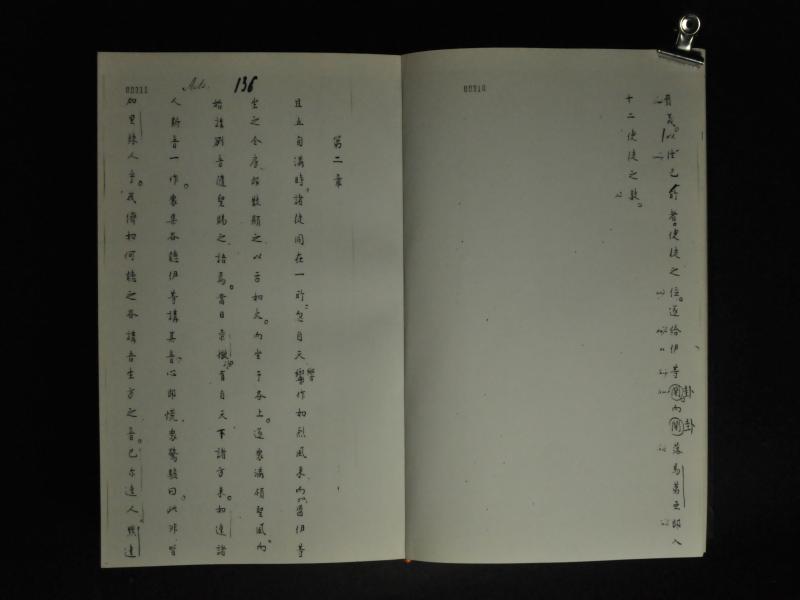 以徃己所者。使徒之位。遂給伊等鬮卦而鬮卦落馬弟亞即入
十二使徒之數
00310
00311
Acts.
136
第二章
且五旬滿時。諸徒同在一所。忽自天響作如烈風來。而伊等
坐之全房。即數顯之以舌如火。而坐于各上。遂衆滿領聖風。而
始講別音隨聖賜之語焉。當日柔撒冷有自天下諸方來。如達諸
人斯音一作。衆集各聽伊等講其音。心即慌。衆驚駭曰。此非皆
加里辣人乎。我儕如何聽之各講吾生方之音。巴尔達人。熙達